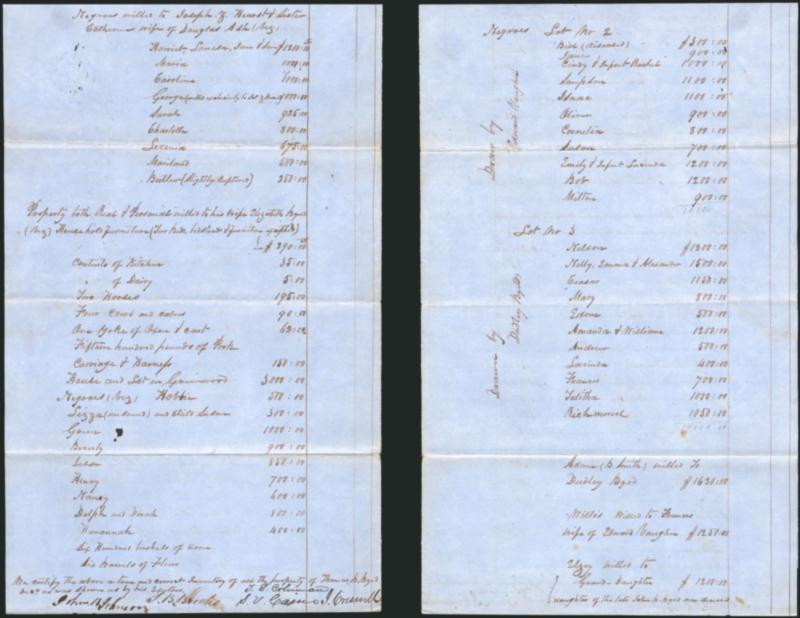 Negroes willed to Joseph Z. Hearst & Sister
Catherine wife of Douglas Ash (Viz)
Harriet, Louisa, Jane & $1200:00
Maria 1000:00
Caroline 1000:00
George 1000:00
Sarah 925:00
Charlotte 800:00
675:00
Mariland 600:00
Butler (Slightly Ruptured) 350:00
Property both Real & Personal willed to his wife Elizabeth Byrd
(Viz) Household furniture (Two Beds, bedsteads & furniture
$290:00
Contents of Kitchen 35:00
" of Dairy 5:00
Two Horses 195:00
Four Cows and calves 90:00
One Yoke of Oxen & cart 62:00
Fifteen hundred pounds of Pork
Carriage & Harness 150:00
House and Lot in Greenwood 3000:00
Negroes (Viz) 500:00
Lizza (unsound) and child Susan 300:00
Green 1000:00
Beverly 900:00
850:00
Henry 700:00
Nancy 600:00
Dolph and Dinah 800:00
Savannah 400:00
Six Hundred bushels of corn
Six Barrels of Flour
We certify the above a true and correct Inventory of all the property of Thomas B. Byrd
decd as was shown us by his Executors
J. L. Coleman
John R. Johnson J. B. Brooks S. V. Cason J. Creswell
Negroes Lot No 2
Drawn by
Edward Vaughn
Bird (diseased) $300:00
Jane 900:00
Cindy & Infant Rachel 1000:00
Sampson 1100:00
Isaac 1100:00
Oliver 900:00
Cornelia 800:00
Susan 700:00
Emily & Infant Lucinda 1200:00
Bob 1200:00
Milton 900:00
Lot No 3
Drawn by
Dudley Byrd
Nelson $1300:00
Milly, Emma & Alexander 1500:00
Ceasar 1150:00
Mary 800:00
Edom 500:00
Amanda & William 1200:00
Andrew 500:00
Lavinda 400:00
Frances 700:00
Talitha 1000:00
Richmond 1050:00
Adam (B. Smith) willed to
Dudley Byrd $1625:00
Willis Willed to Frances
Wife of Edward Vaughn $1250:00
Elzey willed to
Grand-Daughter $1200:00
daughter of the late John B. Byrd now deceased